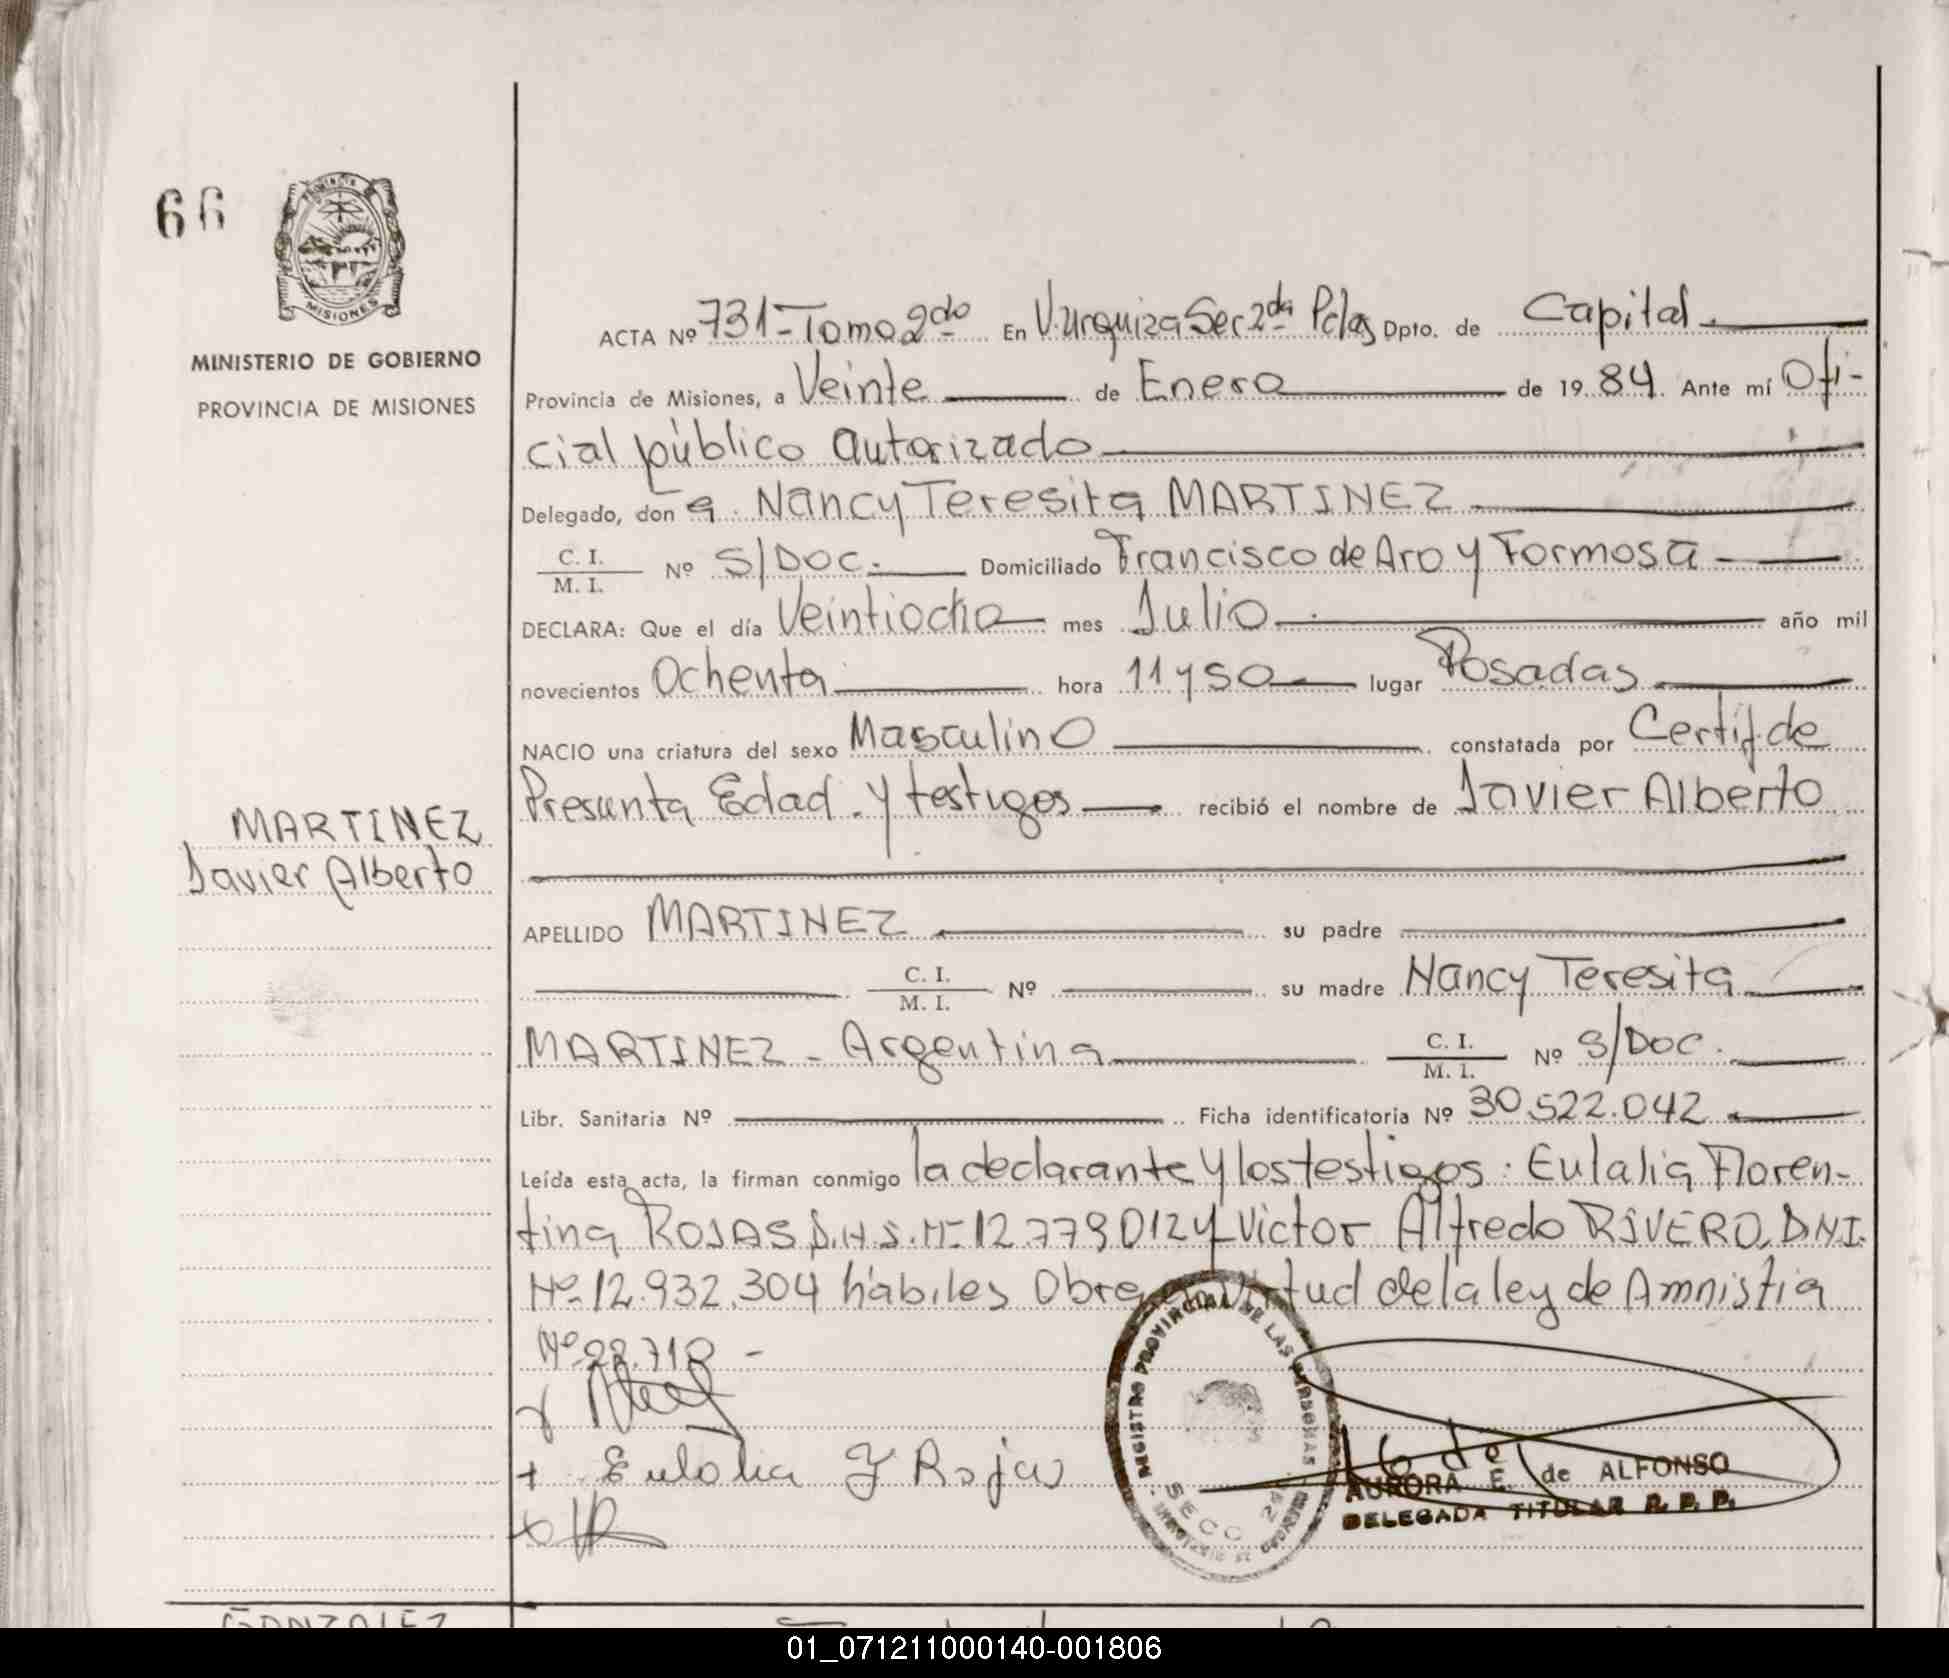 66
PROVINCIA DE
MISIONES
MINISTERIO DE GOBIERNO
PROVINCIA DE MISIONES
ACTA Nº 731-Tomo 2do En V.Urquiza Sec 2da Pdas Dpto. de Capital.
Provincia de Misiones, a Veinte de Enero de 19 84. Ante mí Ofi-
cial público autorizado
Delegado, don a. Nancy Teresita MARTINEZ
C. I.
M. I. Nº S/Doc. Domiciliado Francisco de Aro y Formosa
DECLARA: Que el día Veintiocho mes Julio año mil
novecientos Ochenta hora 11 y 50 lugar Posadas
NACIO una criatura del sexo Masculino constatada por Certif. de
Presunta Edad. y testigos recibió el nombre de Javier Alberto
MARTINEZ
Javier Alberto
APELLIDO MARTINEZ su padre
C. I.
M. I. Nº su madre Nancy Teresita
MARTINEZ - Argentina C. I.
M. I. Nº S/Doc.
Libr. Sanitaria Nº Ficha identificatoria Nº 30.522.042
Leída esta acta, la firman conmigo la declarante y los testigos: Eulalia Floren-
tina ROJAS 12.779.012 y Victor Alfredo RIVERO, D.N.I.
Nº 12.932.304 hábiles Obra en Virtud de la ley de Amnistia
Nº 22.710 -
+ Eulalia F Rojas
REGISTRO PROVINCIAL DE LAS PERSONAS
SECC 2a
AURORA E. de ALFONSO
DELEGADA TITULAR R. P. P.
GONZALEZ
01_071211000140-001806